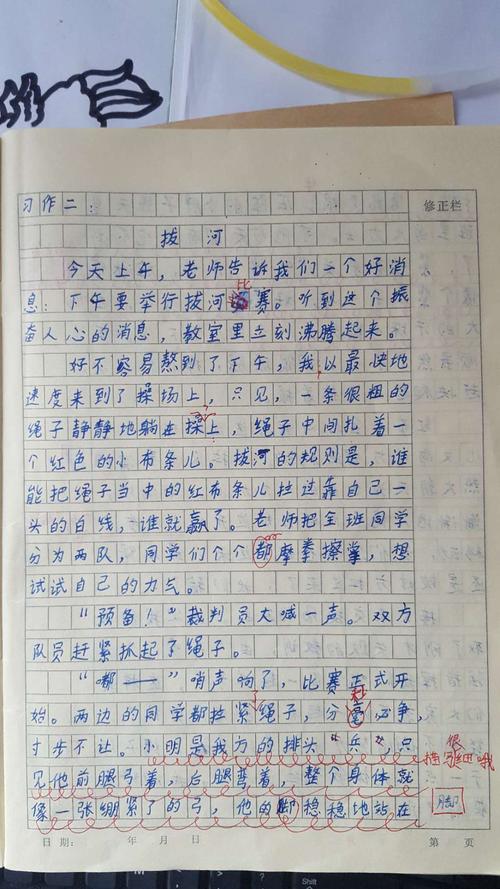 修正栏
习作二:
拔河
今天上午,老师告诉我们一个好消
比
息:下午要举行拔河赛。听到这个振
奋人心的消息,教室里立刻沸腾起来。
好不容易熬到了下午,我以最快地
速度来到了操场上,只见,一条很粗的
绳子静静地躺在操上,绳子中间扎着一
个红色的小布条儿。拔河的规则是,谁
能把绳子当中的红布条儿拉过靠自己一
头的白线,谁就赢了。老师把全班同学
分为两队,同学们个个都摩拳擦掌,想
试试自己的力气。
“预备!”裁判员大喊一声。双方
队员赶紧抓起了绳子。
“嘟——”哨声响了,比赛正式开
秒
始。两边的同学都拉紧绳子,分毫必争,
寸步不让。小明是我方的排头“兵”,只
很
描写细哦
见他前腿弓着,后腿弯着,整个身体就
像一张绷紧了的弓,他的脚稳稳地站在
脚
日期: 年 月 日
第 页